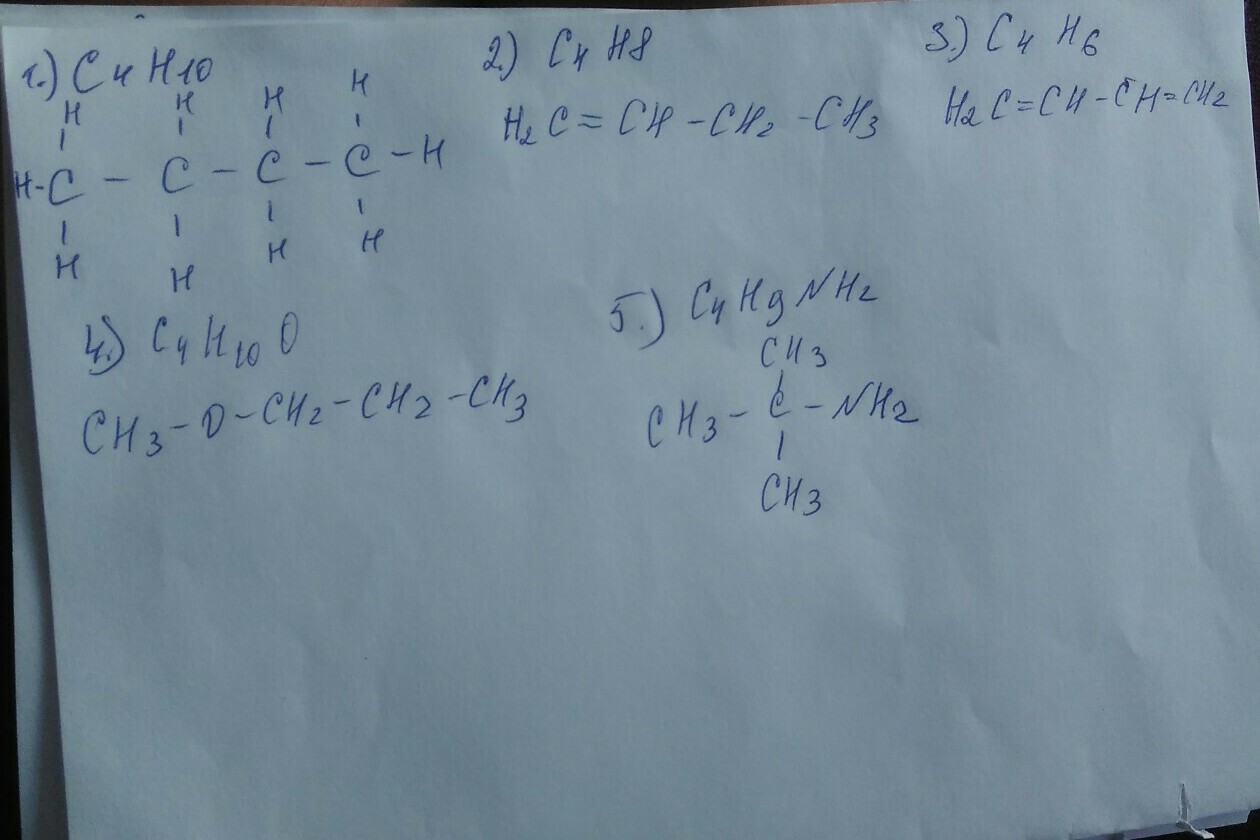 1.) C4H10
H H H H
H-C - C - C - C - H
H H H H
2.) C4H8
H2C=CH-CH2-CH3
3.) C4H6
H2C=CH-CH=CH2
4.) C4H10O
CH3-O-CH2-CH2-CH3
5.) C4H9NH2
CH3
CH3-C-NH2
CH3